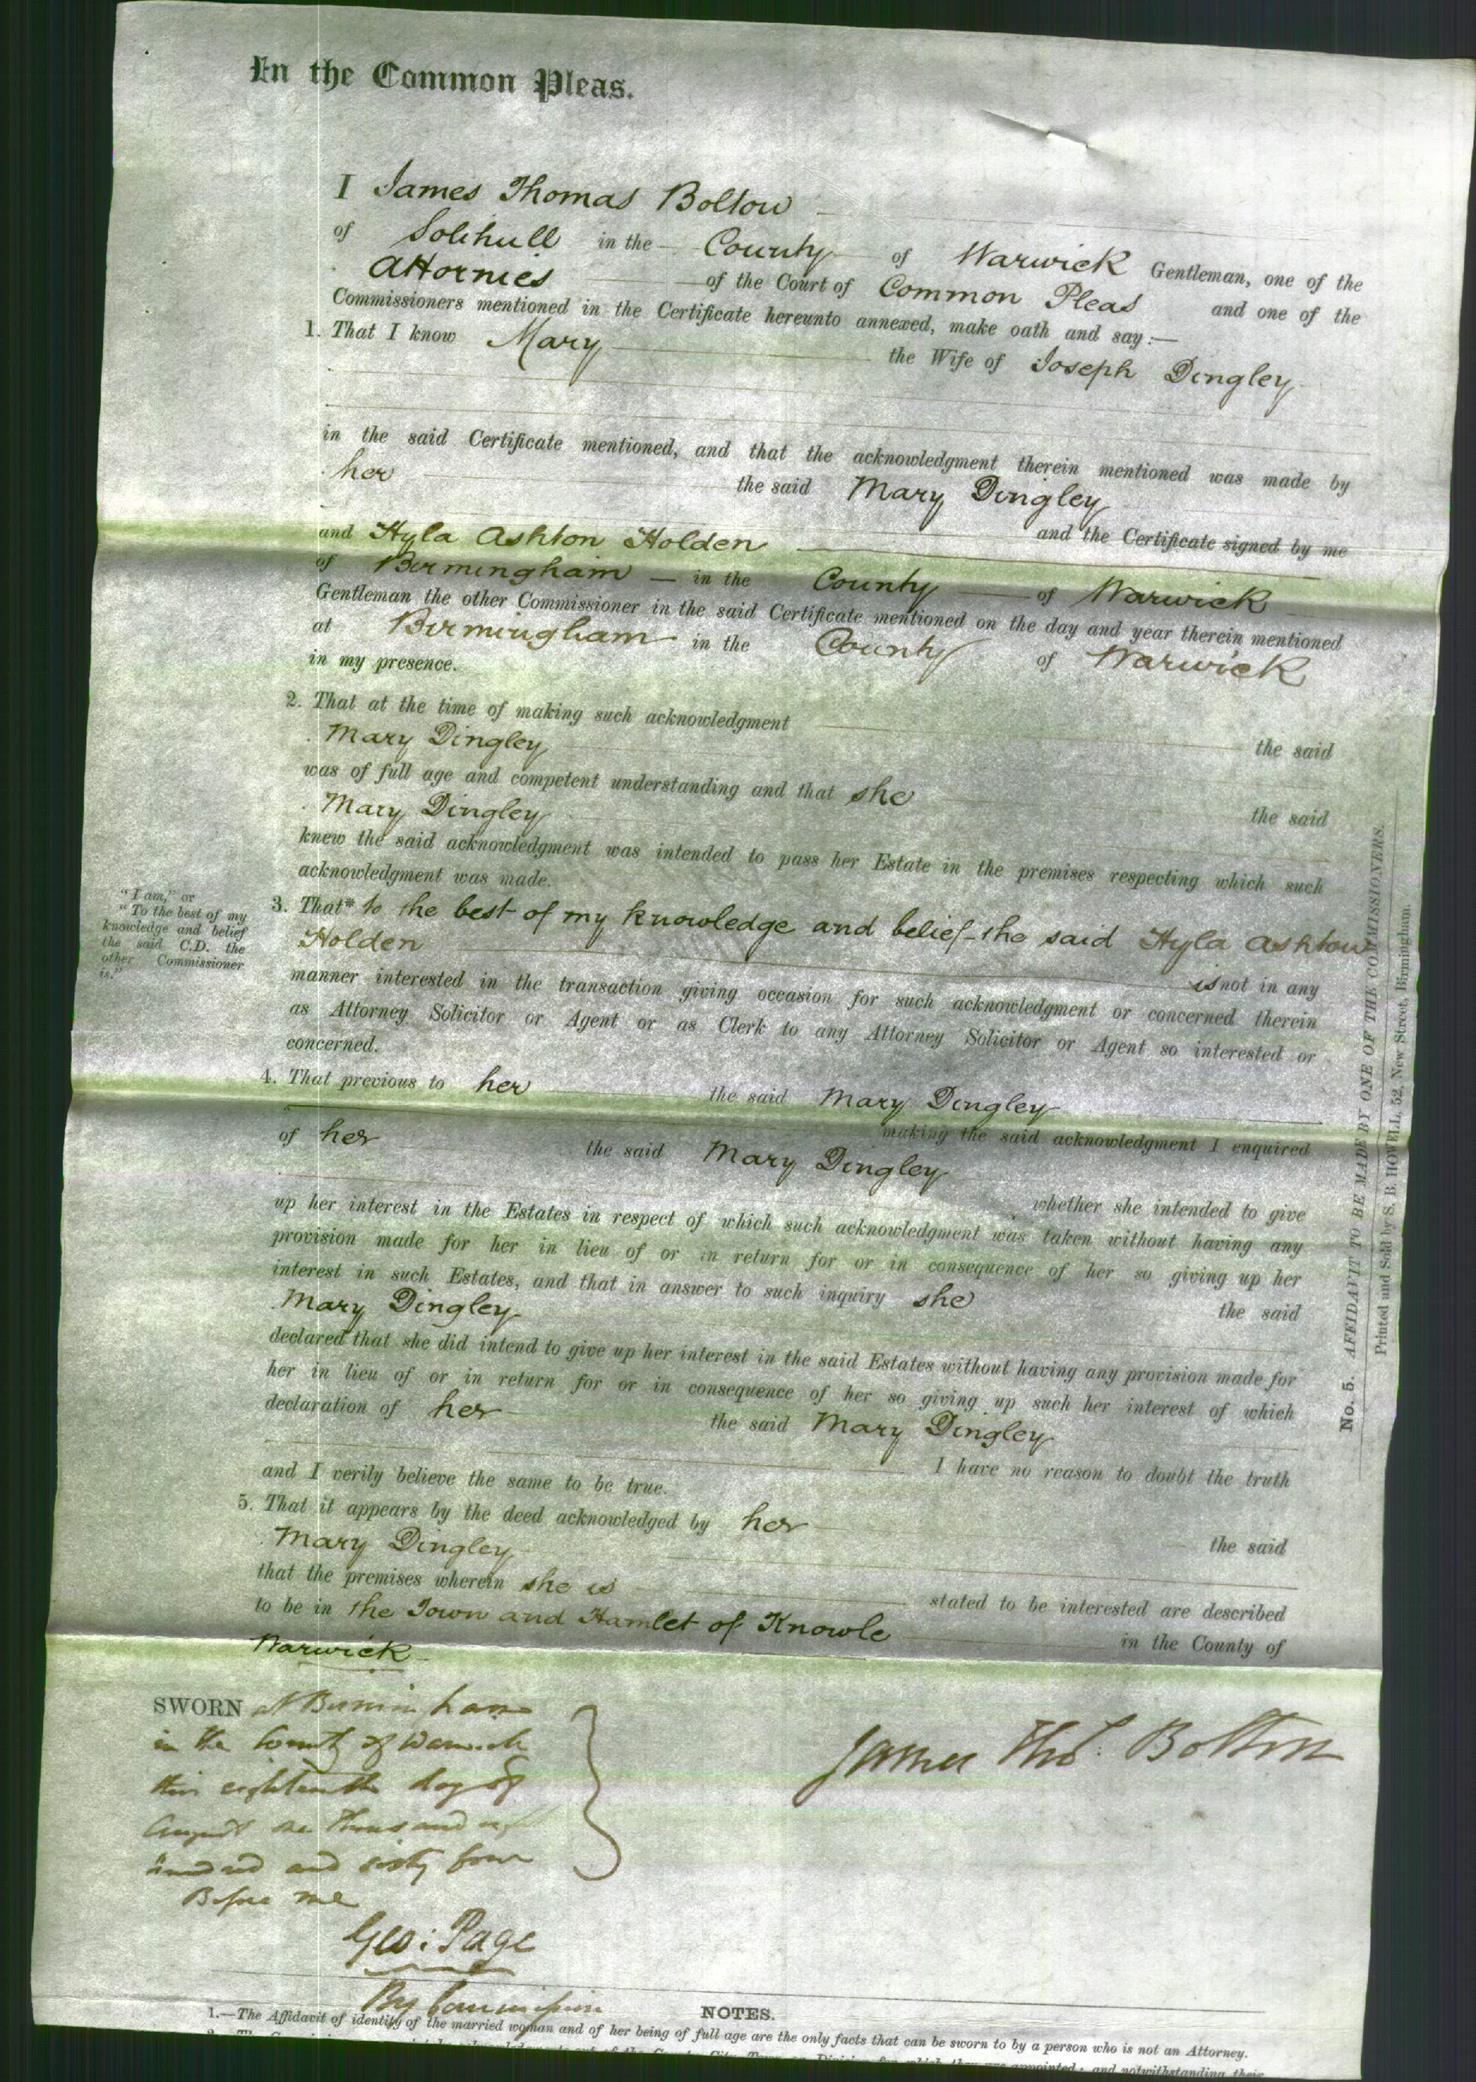 In the Common Pleas.
I James Thomas Bolton
of Solihull in the County of Warwick Gentleman, one of the
Attornies of the Court of Common Pleas and one of the
Commissioners mentioned in the Certificate hereunto annexed, make oath and say:—
1. That I know Mary the Wife of Joseph Dingley
in the said Certificate mentioned, and that the acknowledgment therein mentioned was made by
her the said Mary Dingley
and the Certificate signed by me
and Hyla Ashton Holden
of Birmingham — in the County of Warwick
Gentleman the other Commissioner in the said Certificate mentioned on the day and year therein mentioned
at Birmingham in the County of Warwick
in my presence.
2. That at the time of making such acknowledgment the said
Mary Dingley
was of full age and competent understanding and that she the said
Mary Dingley
knew the said acknowledgment was intended to pass her Estate in the premises respecting which such
acknowledgment was made.
"I am," or
"To the best of my
knowledge and belief
the said C.D. the
other Commissioner
is."
3. That* to the best of my knowledge and belief the said Hyla Ashton
Holden is not in any
manner interested in the transaction giving occasion for such acknowledgment or concerned therein
as Attorney Solicitor or Agent or as Clerk to any Attorney Solicitor or Agent so interested or
concerned.
4. That previous to her the said Mary Dingley
making the said acknowledgment I enquired
of her the said Mary Dingley
whether she intended to give
up her interest in the Estates in respect of which such acknowledgment was taken without having any
provision made for her in lieu of or in return for or in consequence of her so giving up her
interest in such Estates, and that in answer to such inquiry she the said
Mary Dingley
declared that she did intend to give up her interest in the said Estates without having any provision made for
her in lieu of or in return for or in consequence of her so giving up such her interest of which
declaration of her the said Mary Dingley
I have no reason to doubt the truth
and I verily believe the same to be true.
5. That it appears by the deed acknowledged by her the said
Mary Dingley
that the premises wherein she is stated to be interested are described
to be in the Town and Hamlet of Knowle in the County of
Warwick
SWORN at Birmingham
in the County of Warwick
this eighteenth day of
August one thousand eight
hundred and sixty four
Before me
Geo: Page
By Commission
James Thos. Bolton
No. 5. AFFIDAVIT TO BE MADE BY ONE OF THE COMMISSIONERS.
Printed and Sold by S. B. HOWELL, 52, New Street, Birmingham.
NOTES.
1.—The Affidavit of identity of the married woman and of her being of full age are the only facts that can be sworn to by a person who is not an Attorney.